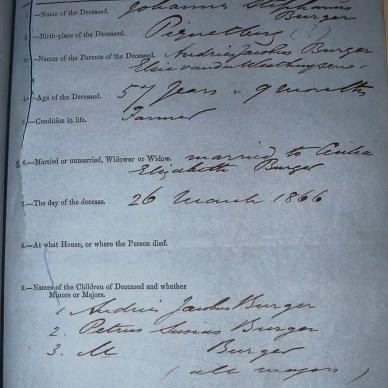 1.—Name of the Deceased. Johannes Stephanus
Burger
2.—Birth-place of the deceased. Piquetberg (?)
3.—Names of the Parents of the Deceased. Andries Jacobus Burger
Elsie van der Westhuysen
4.—Age of the Deceased. 57 Years & 9 months
5.—Condition in life. Farmer
6.—Married or unmarried, Widower or Widow, married to Cecilia
Elizabeth Burger
7.—The day of the decease. 26 March 1866
8.—At what House, or where the Person died.
9.—Names of the Children of Deceased and whether
Minors or Majors.
1. Andries Jacobus Burger
2. Petrus Burger
3. M Burger
(all majors)